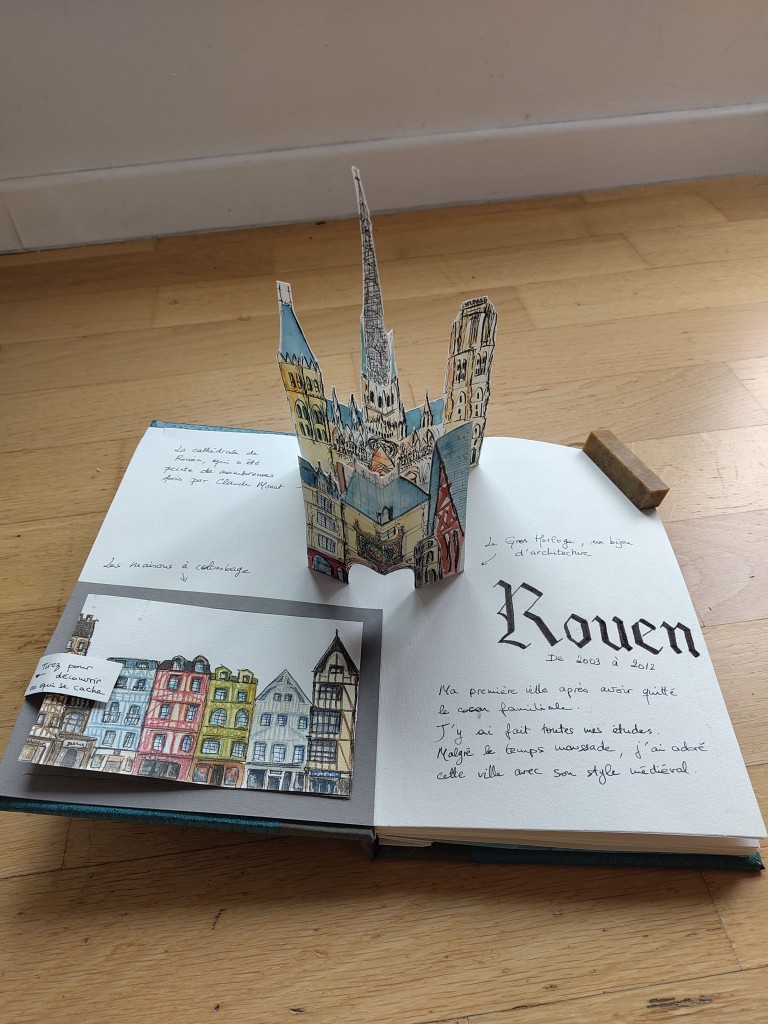 La cathédrale de
Rouen, qui a été
peinte de nombreuses
fois par Claude Monet
Les maisons à colombage
Tirez pour
découvrir
ce qui se cache
Le Gros Horloge, un bijou
d'architecture
Rouen
De 2003 à 2012
Ma première ville après avoir quitté
le cocon familiale.
J'y ai fait toutes mes études.
Malgré le temps maussade, j'ai adoré
cette ville avec son style médiéval.